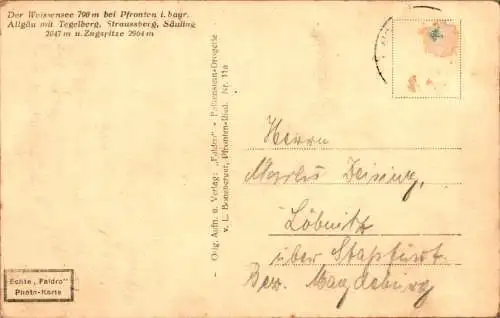 Der Weissensee 790 m bei Pfronten i. bayr.
Allgäu mit Tegelberg, Straussberg, Säuling
2047 m u. Zugspitze 2964 m
Orig. Aufn. u. Verlag: „Faldro" - Falkenstein-Drogerie
v. L. Boneberger, Pfronten-Ried. Nr. 11a
Herrn
Löbnitz
über Staßfurt.
Bez. Magdeburg
Echte „Faldro"
Photo-Karte